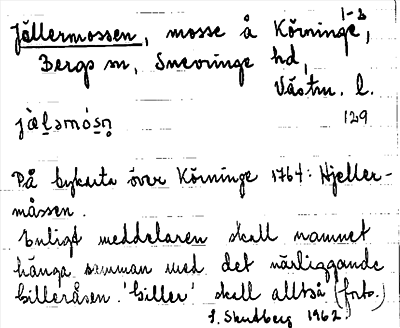 Jällermossen, mosse å Körninge 1-3,
Bergs sn, Snevringe hd,
Västm. l.
jä̀lǝmósn̥ 129
På bykarta över Körninge 1764: Hjeller-
måssen.
Enligt meddelaren skall namnet
hänga samman med det närliggande
Gilleråsen. 'Giller' skall alltså (forts.)
S. Skudberg 1962